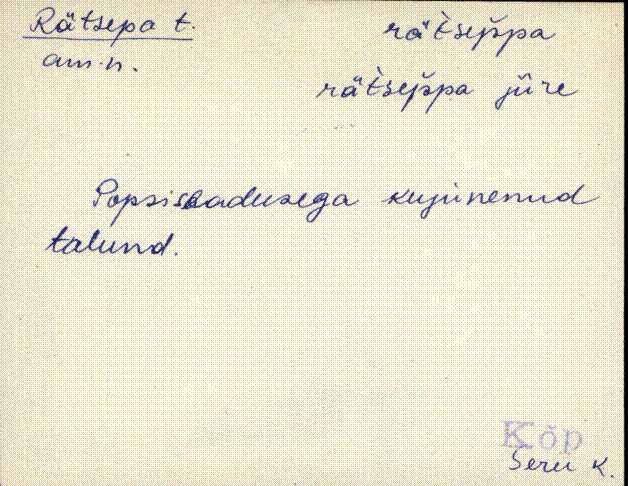 Rätsepa t.
am. n.
rätsep̆pa
rätsep̆pa jüre
Popsiseadusega kujunenud
talund.
Kõp
Seru K.